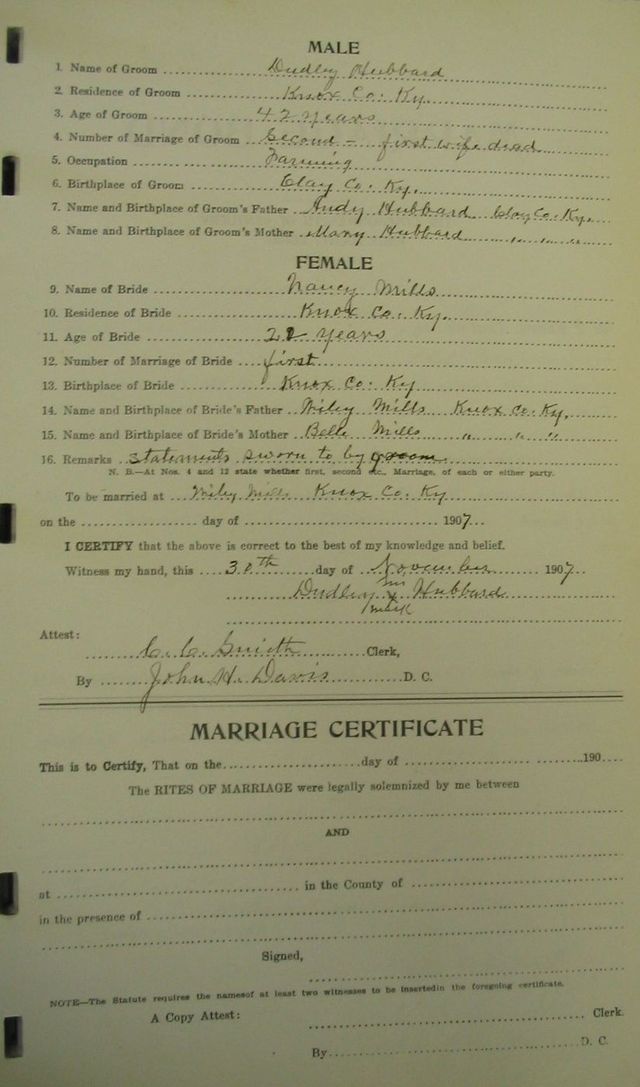 MALE
1. Name of Groom Dudley Hubbard
2. Residence of Groom Knox Co. Ky.
3. Age of Groom 42 years
4. Number of Marriage of Groom Second - first wife dead
5. Occupation Farming
6. Birthplace of Groom Clay Co. Ky.
7. Name and Birthplace of Groom's Father Andy Hubbard Clay Co. Ky.
8. Name and Birthplace of Groom's Mother Mary Hubbard " " "
FEMALE
9. Name of Bride Nancy Mills
10. Residence of Bride Knox Co. Ky.
11. Age of Bride years
12. Number of Marriage of Bride first
13. Birthplace of Bride Knox Co. Ky
14. Name and Birthplace of Bride's Father Wiley Mills Knox Co. Ky.
15. Name and Birthplace of Bride's Mother Belle Mills " " "
16. Remarks statements sworn to by groom
N. B.—At Nos. 4 and 12 state whether first, second etc., Marriage, of each or either party.
To be married at Wiley Mills Knox Co. Ky
on the day of 1907
I CERTIFY that the above is correct to the best of my knowledge and belief.
Witness my hand, this 30th day of November 1907
his
Dudley x Hubbard
mark
Attest:
C. C. Smith Clerk,
By John H. Davis D. C.
MARRIAGE CERTIFICATE
This is to Certify, That on the day of 190
The RITES OF MARRIAGE were legally solemnized by me between
AND
at in the County of
in the presence of
Signed,
NOTE—The Statute requires the namesof at least two witnesses to be insertedin the foregoing certificate.
A Copy Attest: Clerk.
By D. C.